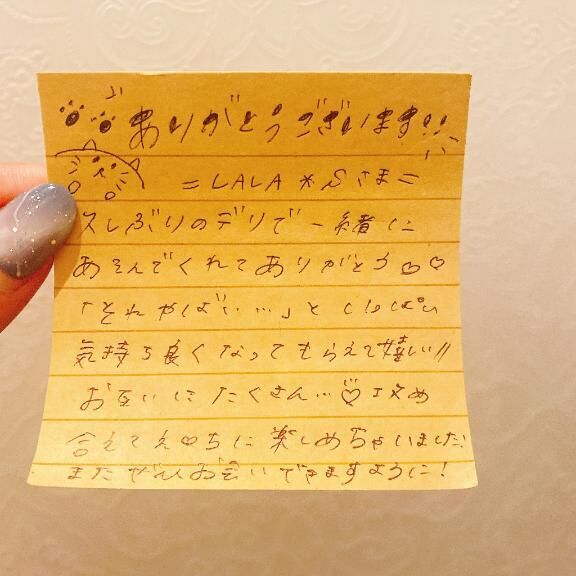 ありがとうございます!!
=LALA*Sさま=
久しぶりのデリで一緒に
あそんでくれてありがとう♡♡
「それやばい…」といっぱい
気持ち良くなってもらえて嬉しい!!
お互いにたくさん…♡攻め
合えてえ♡ちに楽しめちゃいました
またぜひお会いできますように!